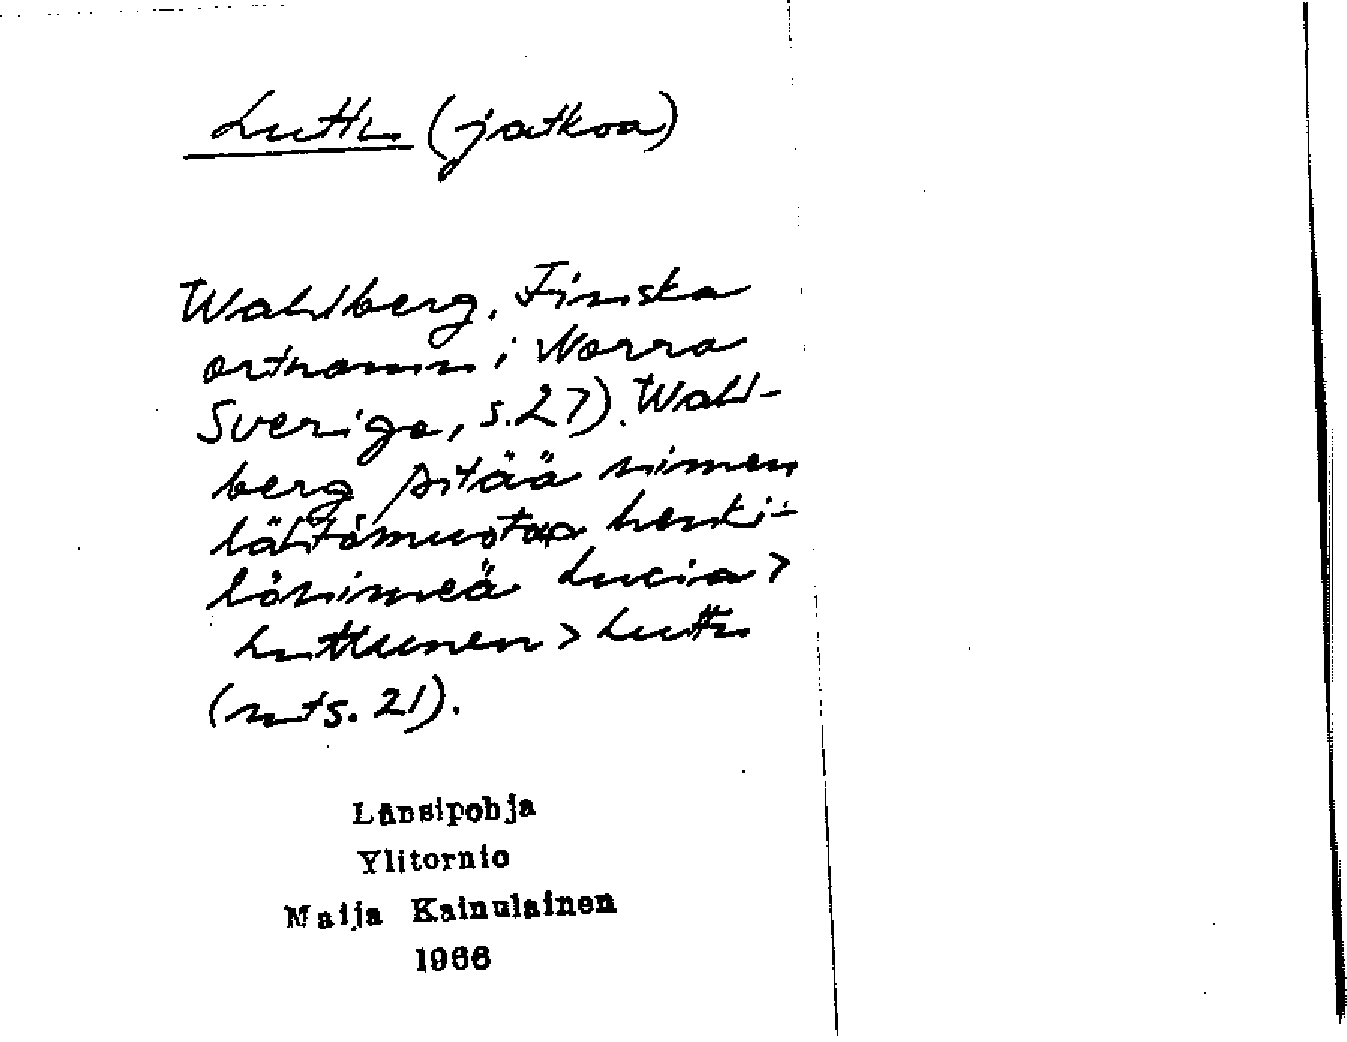 Luttu (jatkoa)
Wahlberg. Finska
ortnamn i Norra
Sverige, s. 27). Wahl-
berg pitää nimen
lähtömuotoa henki-
lönimeä Lucia >
Luttunen > Luttu
(mts. 21).
Länsipohja
Ylitornio
Maija Kainulainen
1966